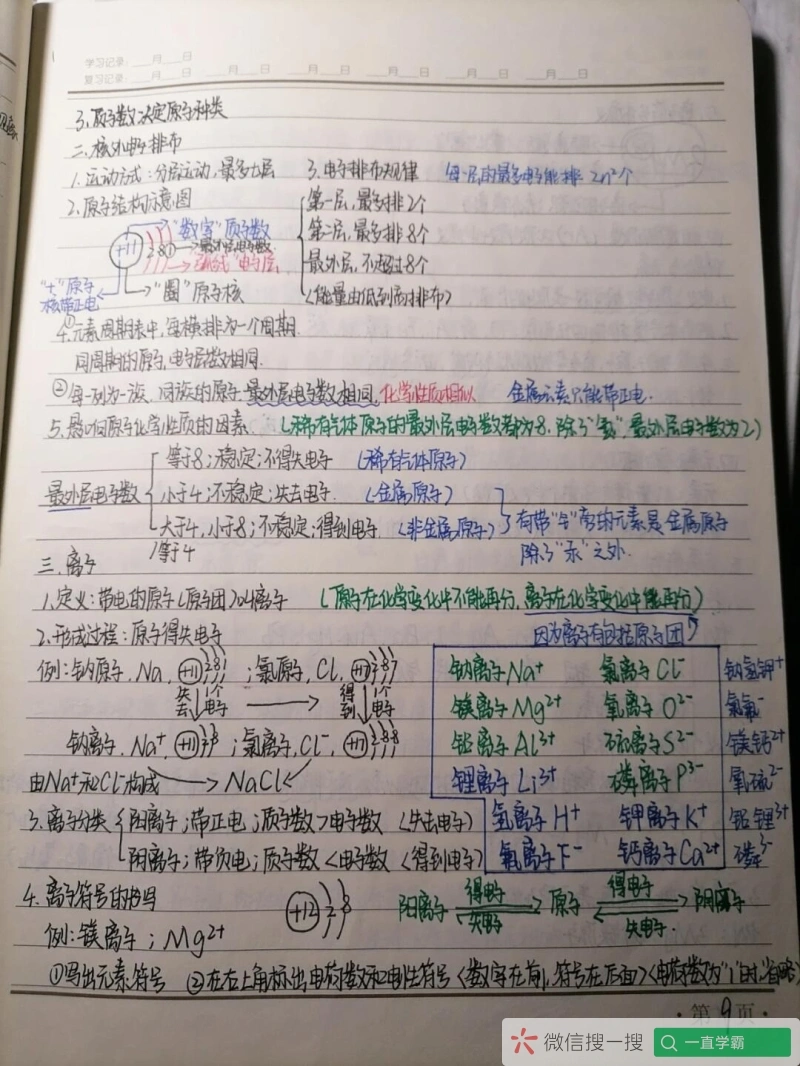 学习记录：___月___日
复习记录：___月___日 ___月___日 ___月___日 ___月___日 ___月___日 ___月___日
3.质子数决定原子种类
二、核外电子排布
1.运动方式：分层运动，最多七层 3.电子排布规律 每一层的最多电子能排2n²个
2.原子结构示意图
第一层，最多排2个
第二层，最多排8个
最外层，不超过8个
<能量由低到高排布>
+11 2 8 1
"数字"质子数
最外层电子数
"弧线"电子层
"+"原子核带正电
"圈"原子核
4.①元素周期表中，每横排为一个周期.
同周期的原子，电子层数相同.
②每一列为一族，同族的原子，最外层电子数相同，化学性质相似 金属元素只能带正电.
5.影响原子化学性质的因素. (稀有气体原子的最外层电子数都为8.除了"氦"，最外层电子数为2)
最外层电子数
等于8；稳定；不得失电子 (稀有气体原子)
小于4；不稳定；失去电子. (金属原子)
大于4，小于8；不稳定；得到电子. (非金属原子)
/等于4
有带"钅"旁的元素是金属原子
除了"汞"之外.
三、离子
1.定义：带电的原子(原子团)叫离子 (原子在化学变化中不能再分，离子在化学变化中能再分)
2.形成过程：原子得失电子 因为离子有包括原子团
例：钠原子，Na，+11 2 8 1；氯原子，Cl，+17 2 8 7
失去1个电子 得到1个电子
钠离子，Na⁺，+11 2 8；氯离子，Cl⁻，+17 2 8 8
由Na⁺和Cl⁻构成 → NaCl
钠离子Na⁺ 氯离子Cl⁻ 钠氢钾⁺
镁离子Mg²⁺ 氧离子O²⁻ 氯氟⁻
铝离子Al³⁺ 硫离子S²⁻ 镁钙²⁺
锂离子Li³⁺ 磷离子P³⁻ 氧硫²⁻
氢离子H⁺ 钾离子K⁺ 铝锂³⁺
氟离子F⁻ 钙离子Ca²⁺ 磷³⁻
3.离子分类
阳离子；带正电；质子数>电子数 <失去电子>
阴离子；带负电；质子数<电子数 <得到电子>
4.离子符号的书写 +12 2 8
阳离子 得电子 失电子 原子 得电子 失电子 阴离子
例：镁离子；Mg²⁺
①写出元素符号 ②在右上角标出电荷数和电性符号<数字在前，符号在后面><电荷数为"1"时，省略>
第9页
微信搜一搜 一直学霸